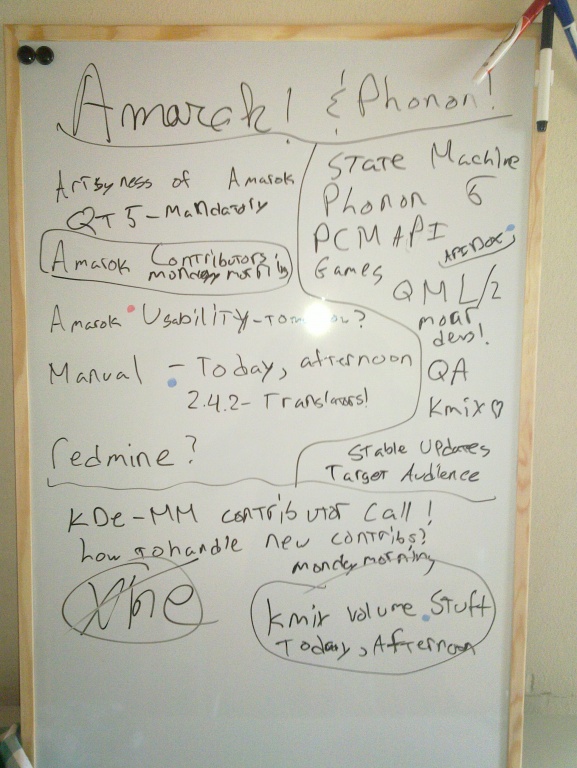 Amarok! & Phonon!
Artsyness of Amarok
QT 5 - Mandatory
Amarok Contributors
monday morning
Amarok Usability - Tomorrow?
Manual - Today, afternoon
2.4.2 - Translators!
redmine?
State Machine
Phonon 5
PCM API
API Dox
Games
QML/2
moar
devs!
QA
Kmix ♡
Stable Updates
Target Audience
KDE-MM contributor call!
how to handle new contribs?
monday morning
Kmix volume Stuff
Today, Afternoon